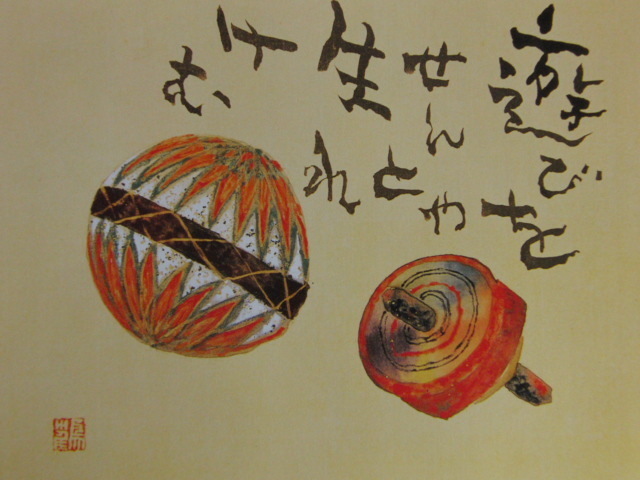 遊びを
せんとや
生れ
けむ